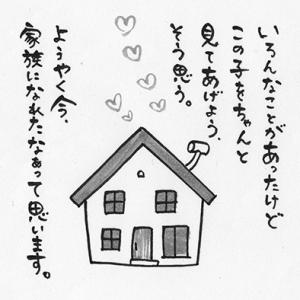 いろんなことがあったけど
この子をちゃんと
見てあげよう、
そう思う。
ようやく今、
家族になれたなぁって思います。